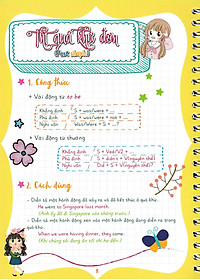 Thì quá khứ đơn
(Past simple)
1. Công thức
+ Với động từ to be
Khẳng định S + was/were + ...
Phủ định S + was/were + not + ...
Nghi vấn Was/Were + S + ...?
+ Với động từ thường
Khẳng định S + Ved/V2 + ...
Phủ định S + didn't + V(nguyên thể)
Nghi vấn Did + S + V(nguyên thể)...?
2. Cách dùng
- Diễn tả một hành động đã xảy ra và đã kết thúc ở quá khứ.
He went to Singapore last month.
(Anh ấy đã đi Singapore vào tháng trước)
- Diễn tả một hành động xen vào một hành động đang diễn ra trong
quá khứ.
When we were having dinner, they came.
(Khi chúng tôi đang ăn tối thì họ đến.)